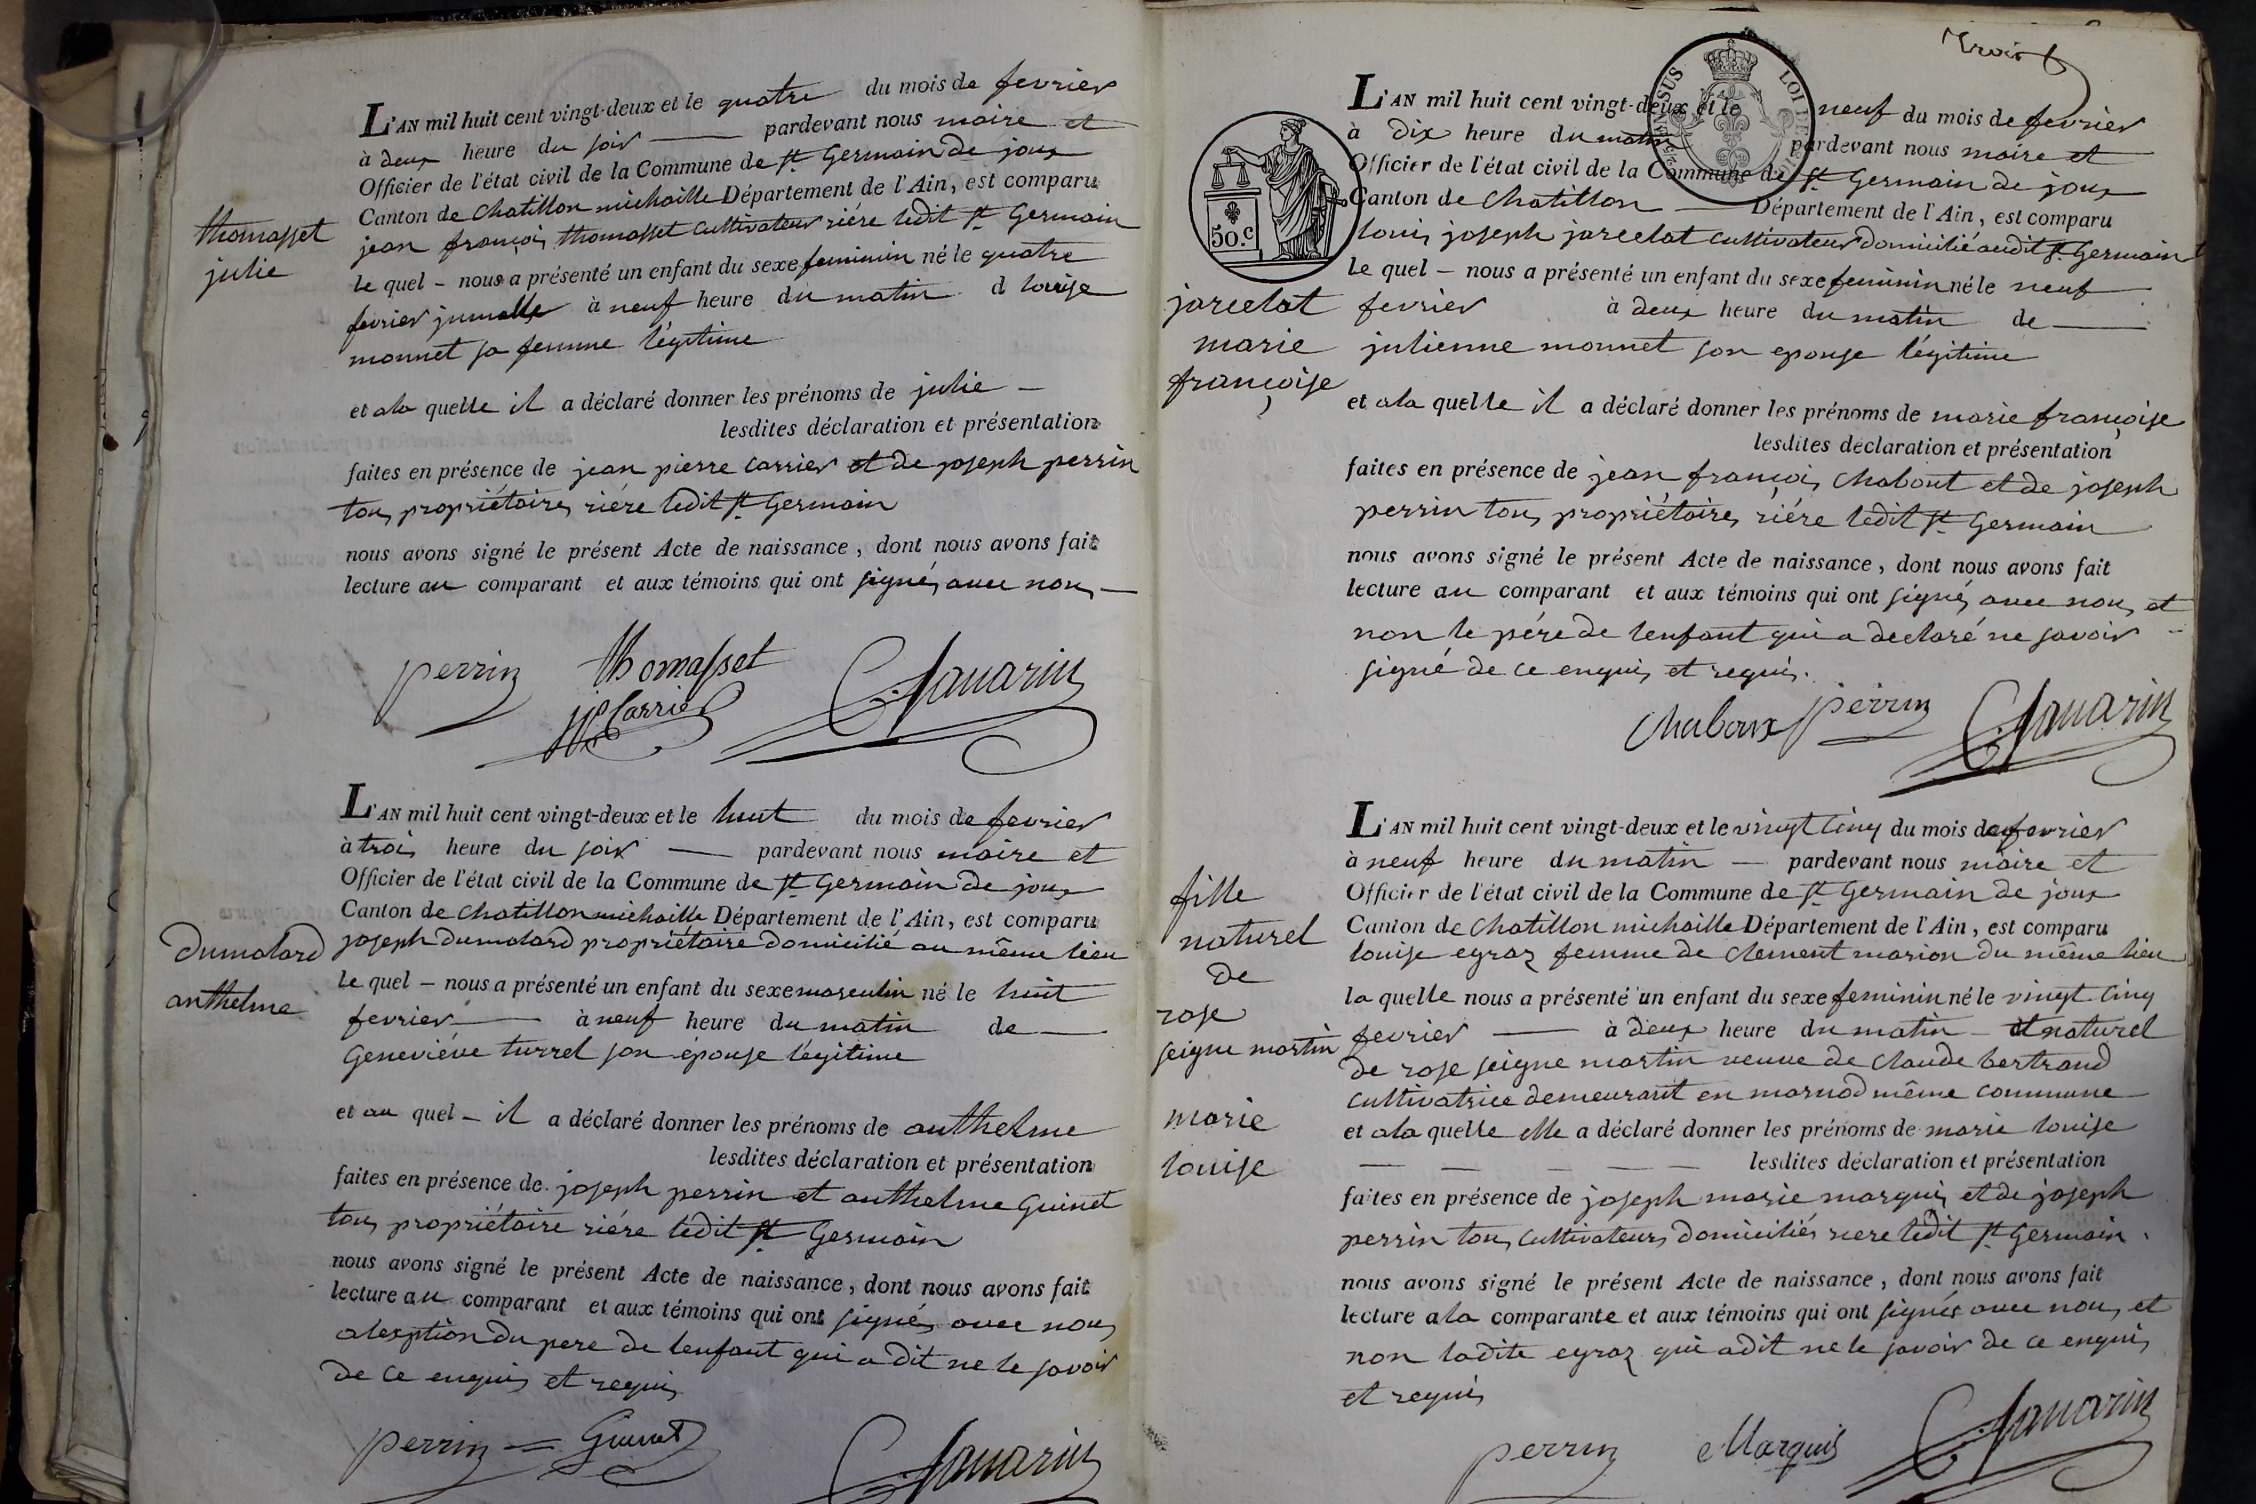 thomasset
julie
L'AN mil huit cent vingt-deux et le quatre du mois de fevrier
à deux heure du soir — pardevant nous maire et
Officier de l'état civil de la Commune de St Germain de joux
Canton de Chatillon michaille Département de l'Ain, est comparu
jean françois thomasset cultivateur riére ledit St Germain
le quel – nous a présenté un enfant du sexe feminin né le quatre
fevrier jumelle à neuf heure du matin d louise
monnet sa femme légitime
et ala quelle il a déclaré donner les prénoms de julie —
lesdites déclaration et présentation
faites en présence de jean pierre carrier et de joseph perrin
tous propriétaires riére ledit St Germain
nous avons signé le présent Acte de naissance, dont nous avons fait
lecture au comparant et aux témoins qui ont signés avec nous —
perrin thomasset
JP Carrier Savarin
dumolard
anthelme
L'AN mil huit cent vingt-deux et le huit du mois de fevrier
à trois heure du soir — pardevant nous maire et
Officier de l'état civil de la Commune de St Germain de joux
Canton de Chatillon michaille Département de l'Ain, est comparu
joseph dumolard propriétaire domicilié au même lieu
le quel – nous a présenté un enfant du sexe masculin né le huit
fevrier — à neuf heure du matin de —
Geneviéve turrel son épouse légitime
et au quel – il a déclaré donner les prénoms de anthelme
lesdites déclaration et présentation
faites en présence de joseph perrin et anthelme Guinet
tous propriétaire riére ledit St Germain
nous avons signé le présent Acte de naissance, dont nous avons fait
lecture au comparant et aux témoins qui ont signés avec nous
alexption du pere de lenfant qui a dit ne le savoir
de ce enquis et requis
perrin Guinet
Savarin
trois
50.C
jarcelat
marie
françoise
L'AN mil huit cent vingt-deux et le neuf du mois de fevrier
à dix heure du matin pardevant nous maire et
Officier de l'état civil de la Commune de St Germain de joux
Canton de Chatillon — Département de l'Ain, est comparu
louis joseph jarcelat cultivateur domicilié audit St Germain
le quel – nous a présenté un enfant du sexe feminin né le neuf
fevrier à deux heure du matin de —
julienne monnet son epouse légitime
et ala quelle il a déclaré donner les prénoms de marie françoise
lesdites déclaration et présentation
faites en présence de jean françois chaboud et de joseph
perrin tous propriétaires riére ledit St Germain
nous avons signé le présent Acte de naissance, dont nous avons fait
lecture au comparant et aux témoins qui ont signés avec nous et
non le pére de lenfant qui a declaré ne savoir
signé de ce enquis et requis.
perrin Savarin
fille
naturel
de
rose
seigne martin
marie
louise
L'AN mil huit cent vingt-deux et le vingt cinq du mois de fevrier
à neuf heure du matin — pardevant nous maire et
Officier de l'état civil de la Commune de St Germain de joux
Canton de Chatillon michaille Département de l'Ain, est comparu
louise egraz femme de clement marion du même lieu
la quelle nous a présenté un enfant du sexe feminin né le vingt cinq
fevrier — à deux heure du matin – naturel
de rose seigne martin veuve de claude bertrand
cultivatrice demeurant en marnod même commune
et ala quelle elle a déclaré donner les prénoms de marie louise
— — — — — lesdites déclaration et présentation
faites en présence de joseph marie marquis et de joseph
perrin tous cultivateurs domiciliés riere ledit St Germain.
nous avons signé le présent Acte de naissance, dont nous avons fait
lecture ala comparante et aux témoins qui ont signés avec nous et
non ladite egraz qui a dit ne le savoir de ce enquis
et requis
perrin Marquis Savarin